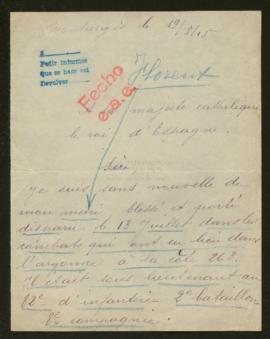 Montargis le 19/8/15
A
Pedir informes
Que se hace así
Devolver
Florent
Fecho
majesté catholique
le roi d'Espagne.
Sire,
Je suis sans nouvelle de
mon mari blessé et porté
disparu le 13 Juillet dans les
combats qui ont eu lieu dans
l'argonne à la côte 263.
Il était sous lieutenant au
82e d'infanterie 2e bataillon
8e compagnie.